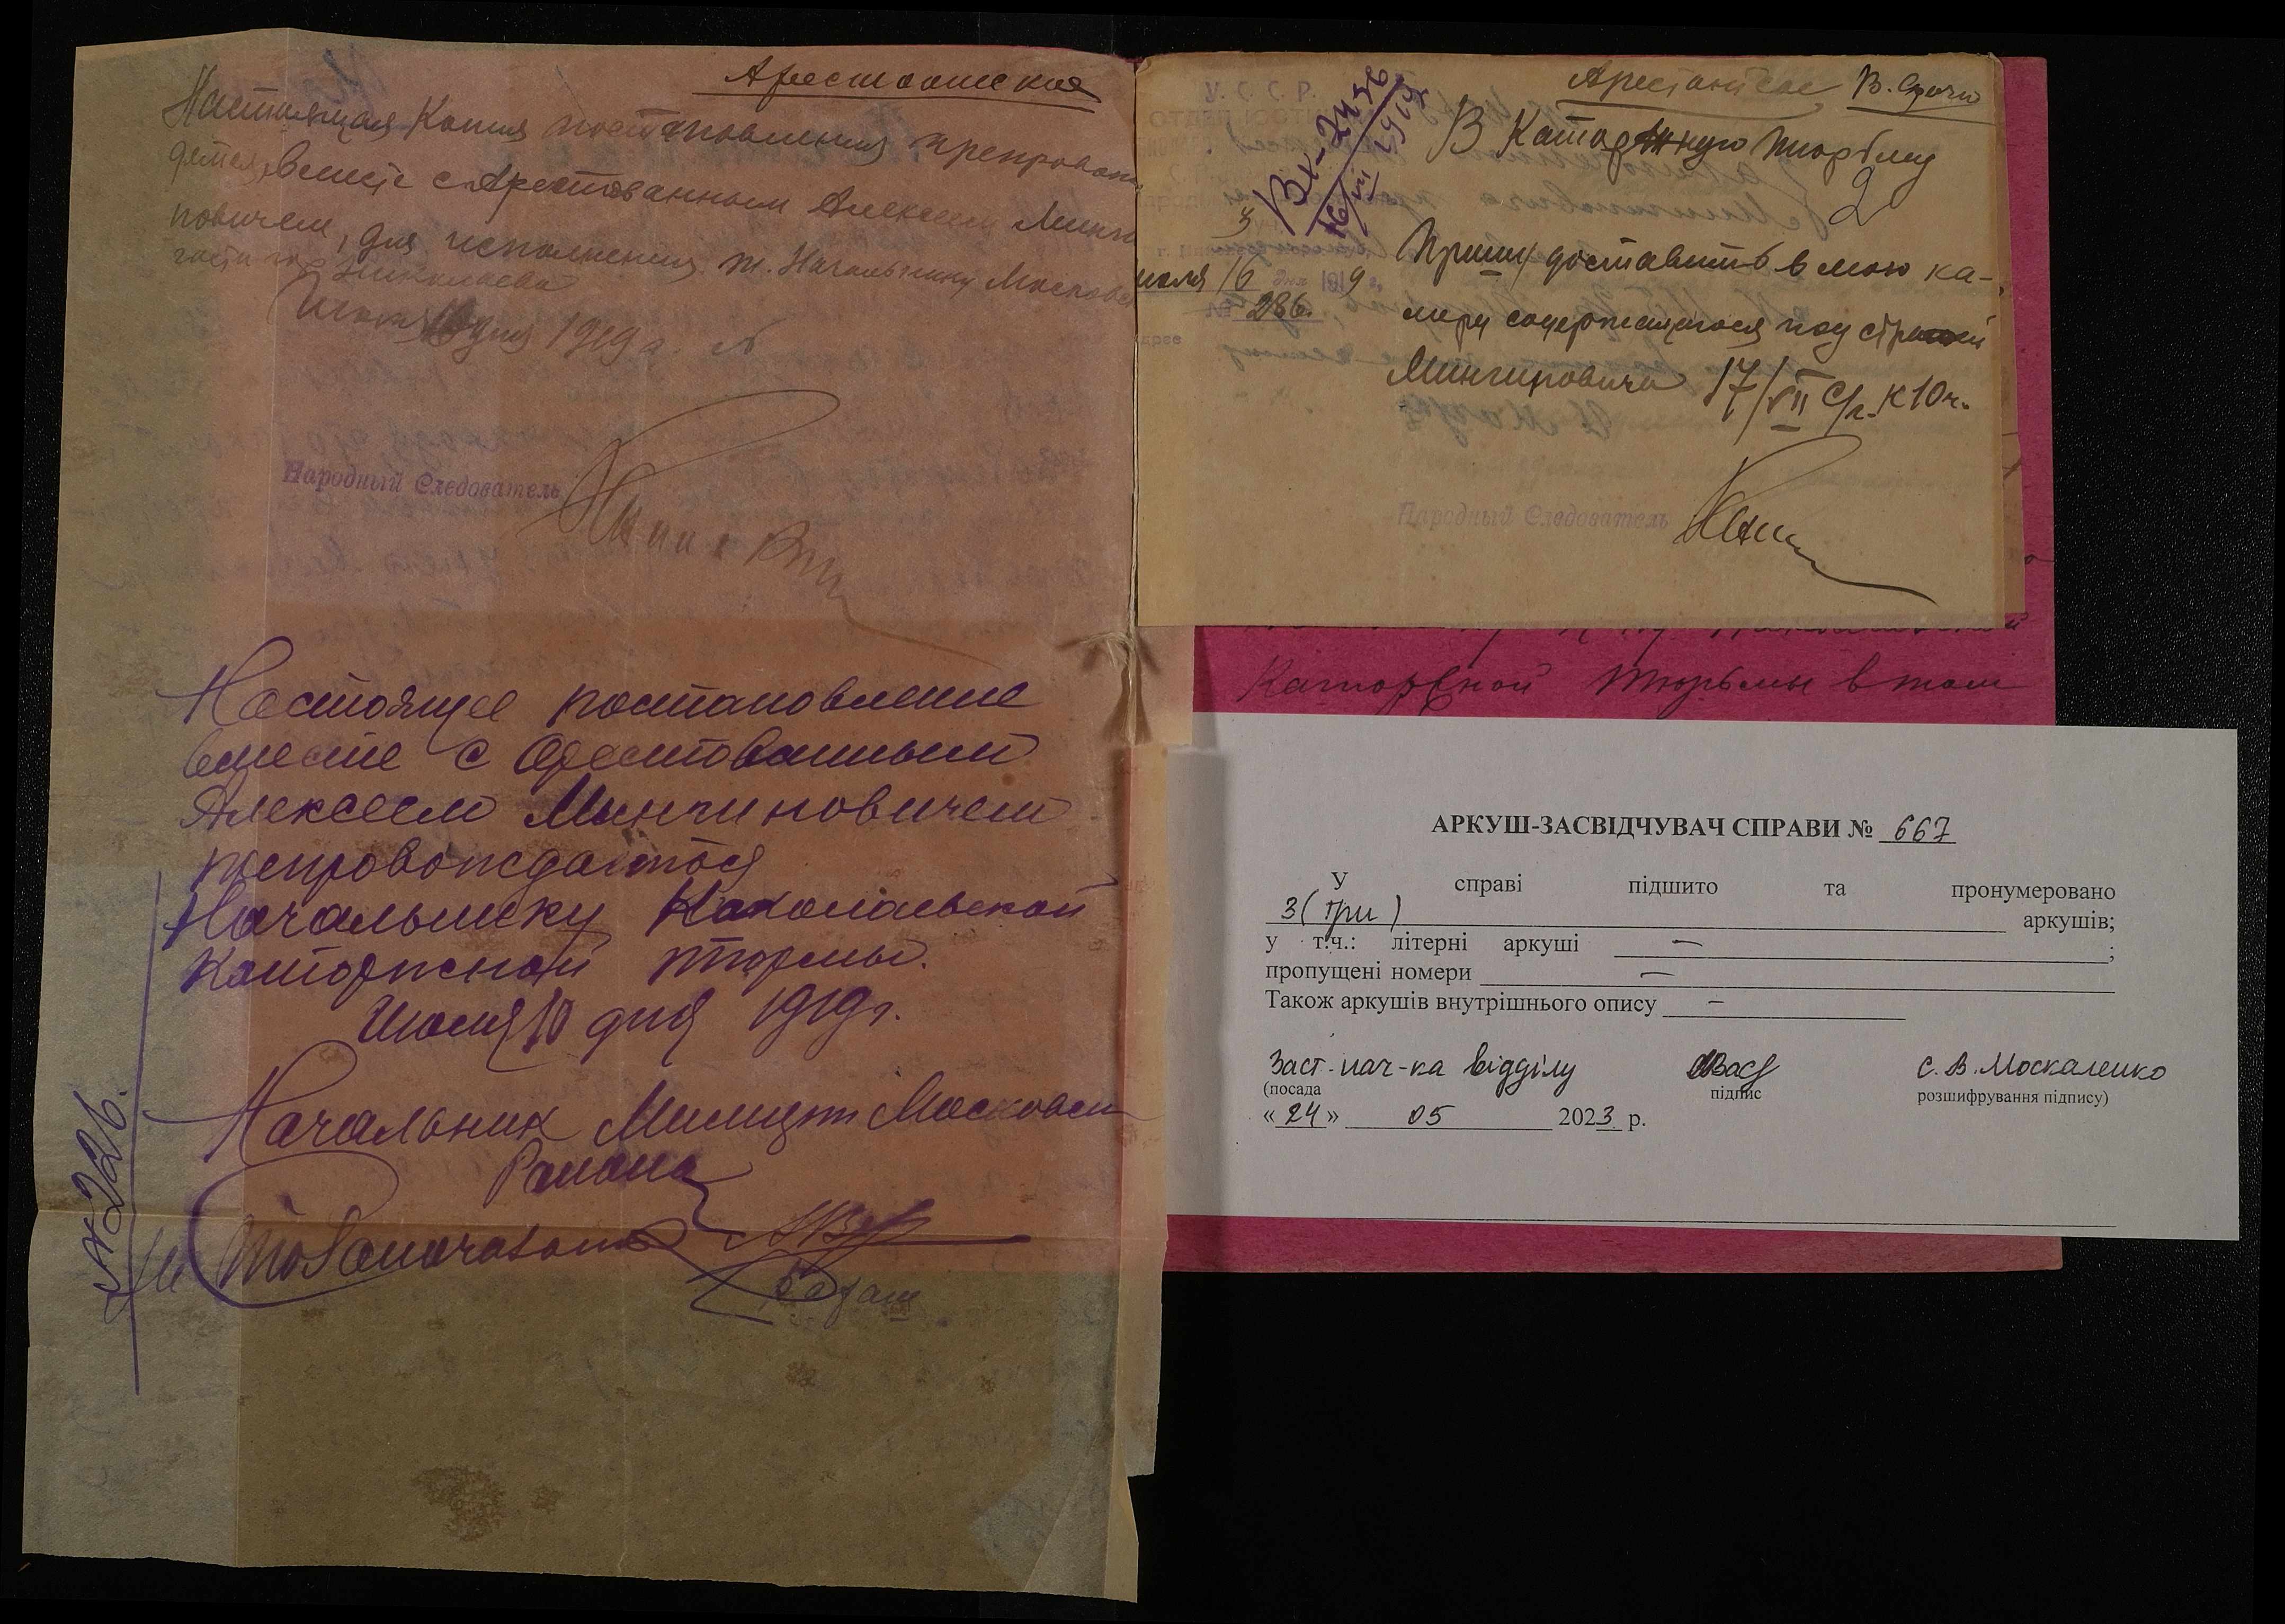 Арестантское
Настоящая Копия постановления препровож
дается вместе с Арестованным Алексеем Минги
повичем, для исполнения т. Начальнику Московс
части гор Николаева
Июля 10 дня 1919 г. №
Народный Следователь
Настоящее постановление
вместе с Арестованным
Алексеем Мингиповичем
препровождается
Начальнику Николаевской
каторжной тюрмы.
Июля 10 дня 1919 г.
Начальник Милиции Московск
Района
№ 2226.
Арестантское В. Срочно
Вх-2436
16/VII 1919
У. С. Р.
В Каторжную тюрьму
2
3
июля 16 дня 1919 г.
№ 286.
Прошу доставить в мою ка-
меру содержащагося под стражей
Мингиповича 17/VII с/г. к 10 ч.
Народный Следователь
Каторжной тюрьмы в том
АРКУШ-ЗАСВІДЧУВАЧ СПРАВИ № 667
У справі підшито та пронумеровано
3 (три) аркушів;
у т.ч.: літерні аркуші — ;
пропущені номери —
Також аркушів внутрішнього опису —
Заст. нач-ка відділу С. В. Москаленко
(посада підпис розшифрування підпису)
«24» 05 2023 р.